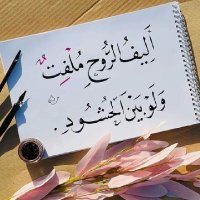 أَلِيفُ الرُّوحِ مُلْفِتٌ
وَلَوْ بَيْنَ الحُشُودِ.